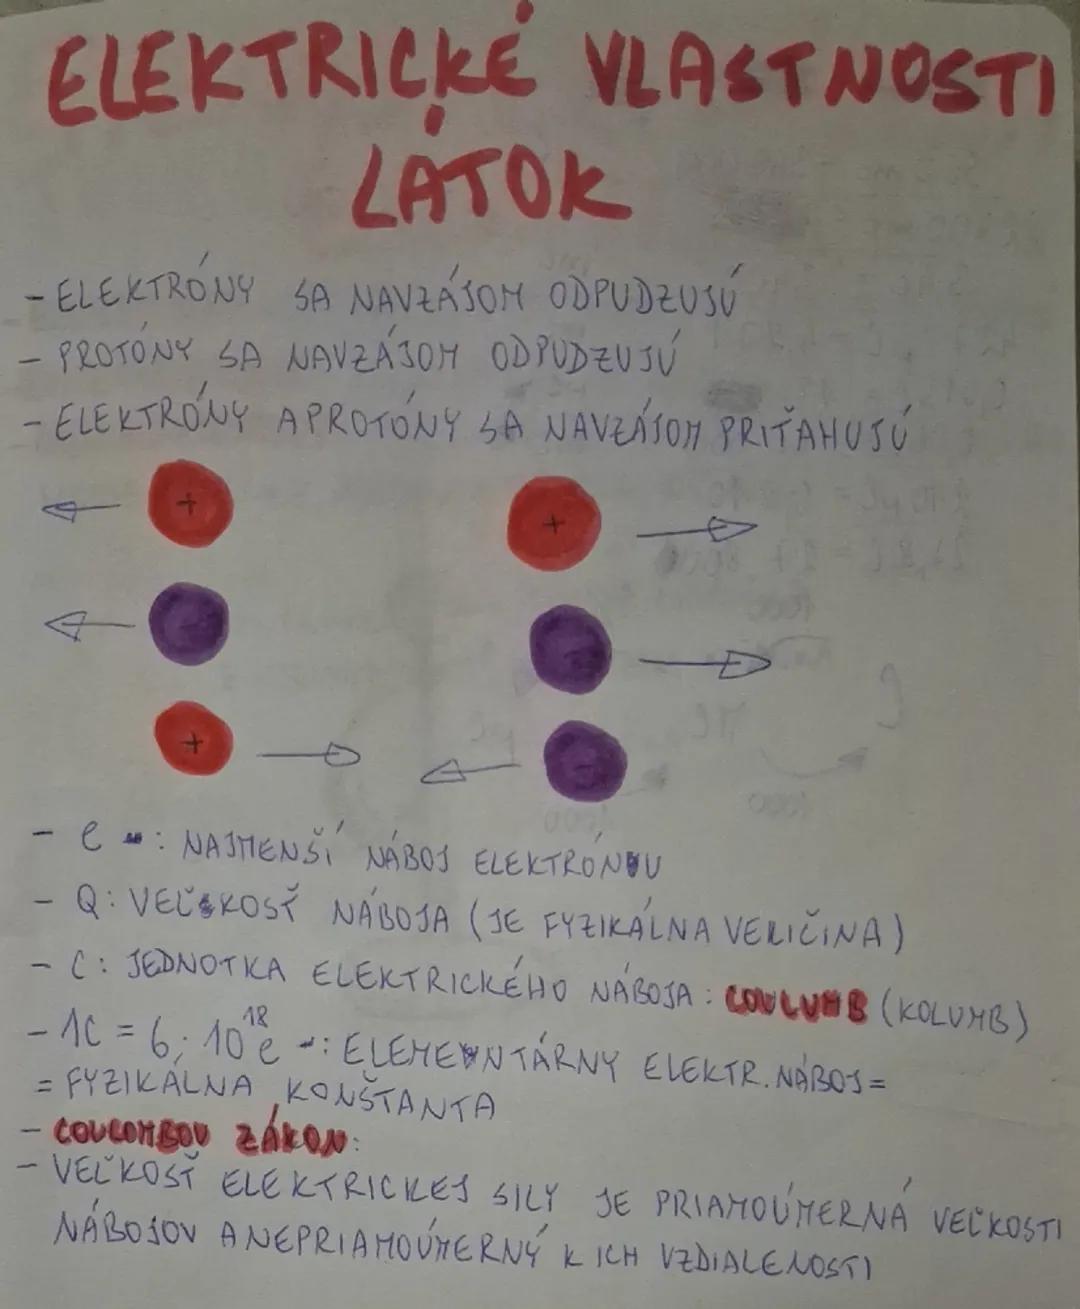 ELEKTRICKÉ VLASTNOSTI
LÁTOK
- ELEKTRÓNY SA NAVZÁJOM ODPUDZUJÚ
- PROTÓNY SA NAVZÁJOM ODPUDZUJÚ
- ELEKTRÓNY A PROTÓNY SA NAVZÁJOM PRIŤAHUJÚ
+ +
- -
+ -
- e -: NAJMENŠÍ NÁBOJ ELEKTRÓNOU
- Q: VEĽKOSŤ NÁBOJA (JE FYZIKÁLNA VELIČINA)
- C: JEDNOTKA ELEKTRICKÉHO NÁBOJA: COULUMB (KOLUMB)
- 1C = 6, 10¹⁸ e -: ELEMENTÁRNY ELEKTR. NÁBOJ =
= FYZIKÁLNA KONŠTANTA
- COULOMBOV ZÁKON:
- VEĽKOSŤ ELEKTRICKEJ SILY JE PRIAMOÚMERNÁ VEĽKOSTI
NÁBOJOV A NEPRIAMOÚMERNÝ K ICH VZDIALENOSTI